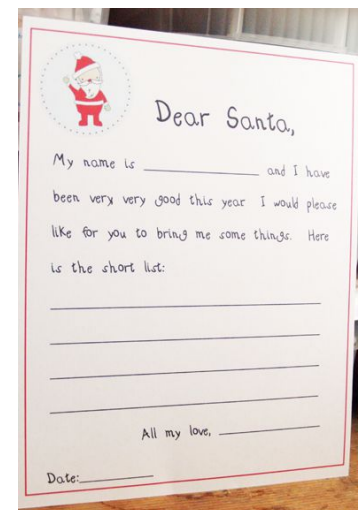 Dear Santa,
My name is ____________ and I have
been very very good this year I would please
like for you to bring me some things. Here
is the short list:
All my love, ____________
Date:____________